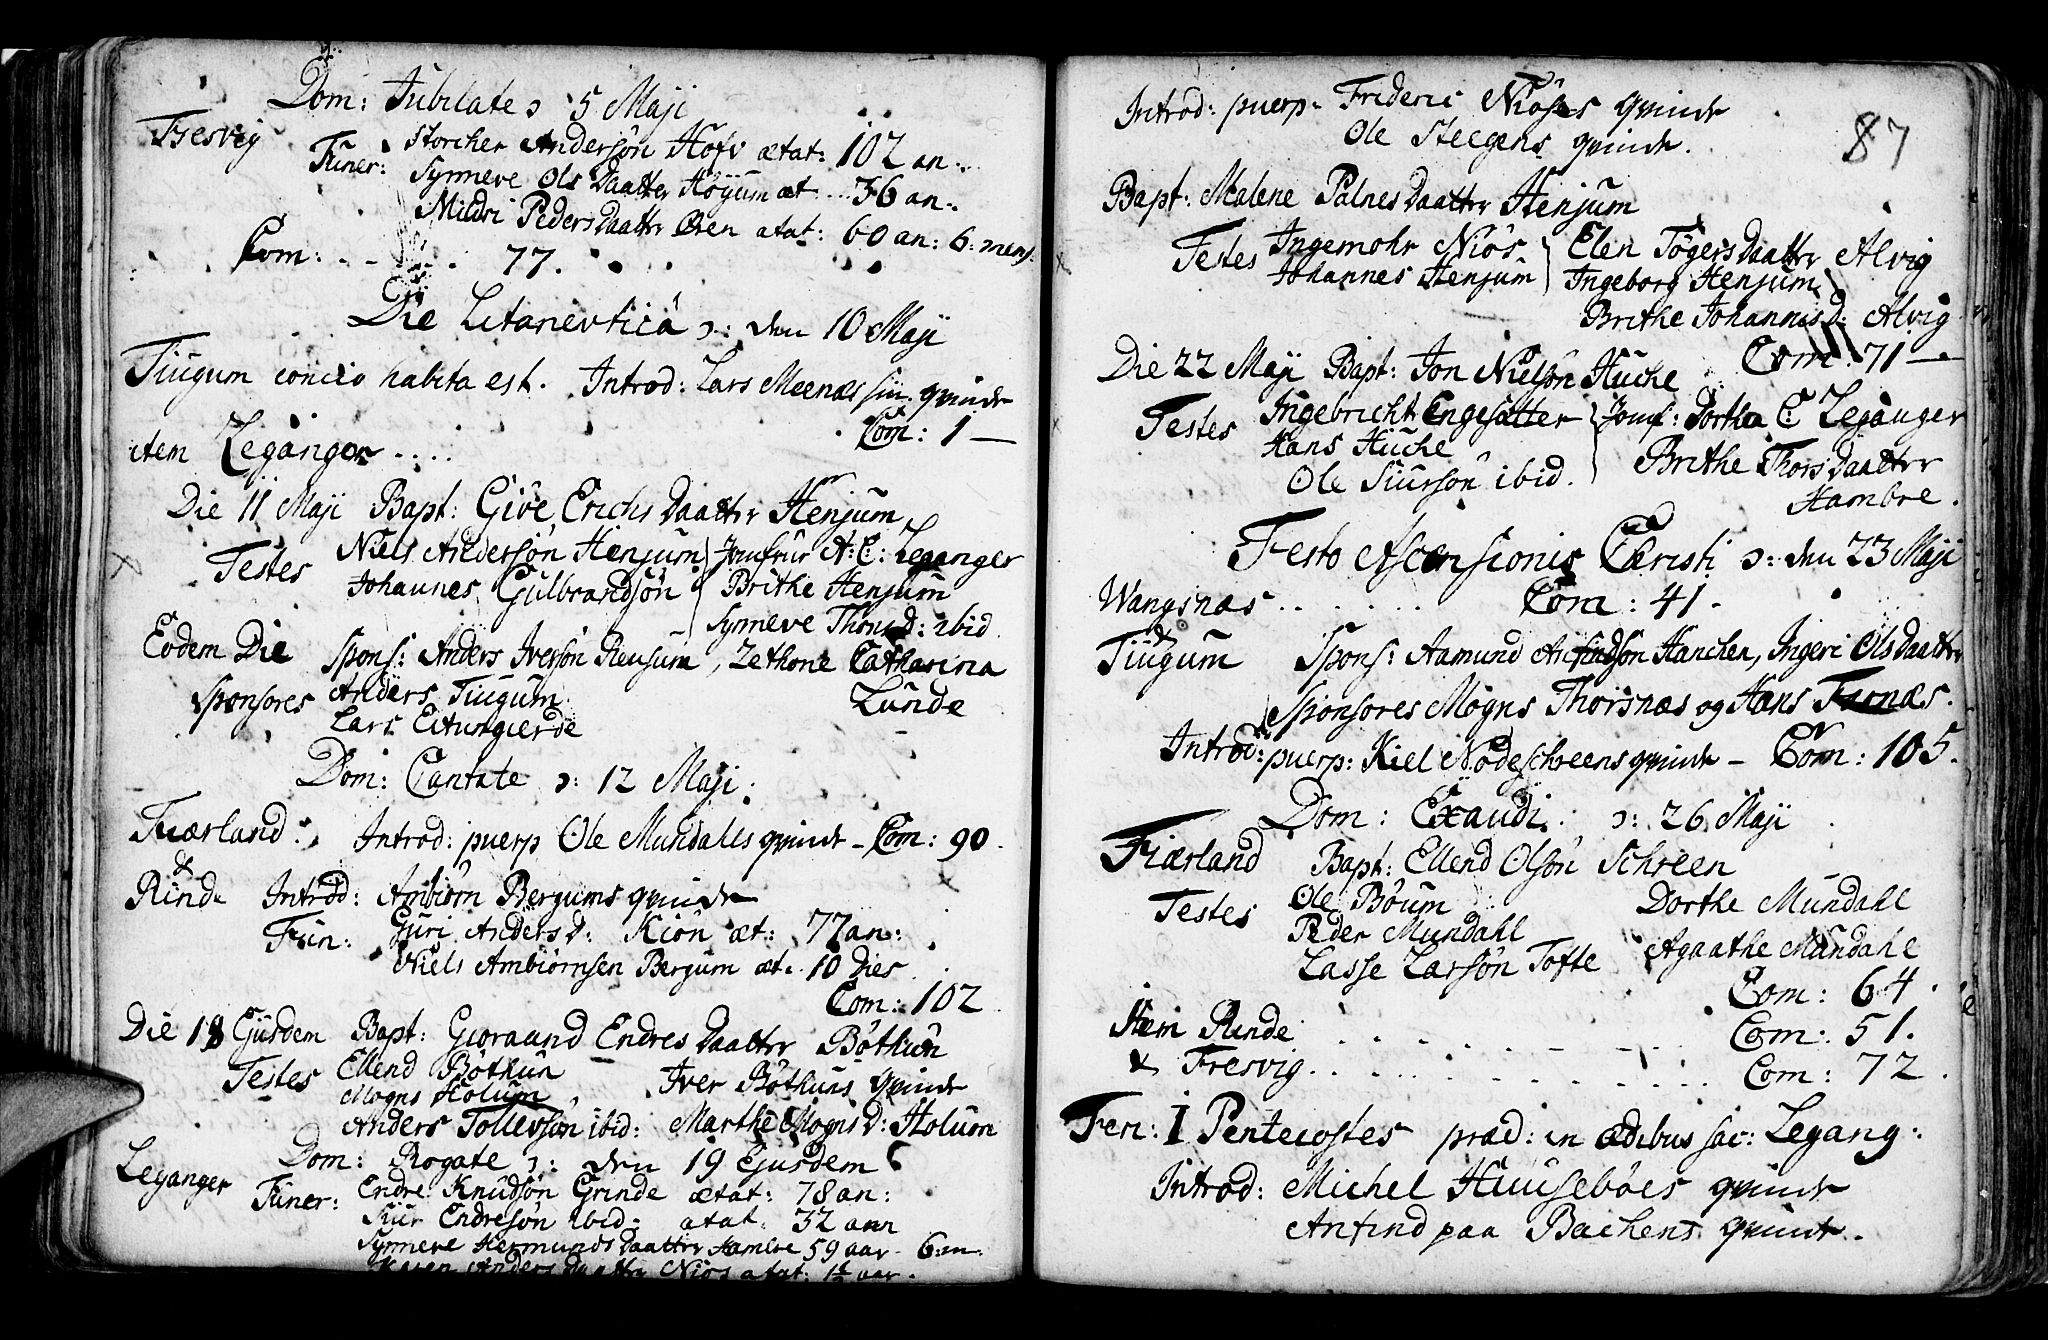 Dom: Jubilate ɔ 5 Maji
Fresvig
Funer: Storcher Andersøn Hofv ætat: 102 an:
Synneve Ols Daatter Høyum æt... 36 an:
Mildri Peders Daatter Øren ætat: 60 an: 6: mens
Com: - - . . 77.
Die Litanevticâ ɔ: den 10 Maji
Tiugum concio habita est. Introd: Lars Meenæs sin qvinde
item Leganger .... Com: 1 —
Die 11 Maji Bapt: Give Erichs Daatter Henjum
Testes Niels Andersøn Henjum Jomfrur A: C: Leganger
Johannes Gulbrandsøn Brithe Henjum
Synneve Thons D: ibid
Eodem Die Spons: Anders Iversøn Reusum, Zethone Catharina
Lunde
Sponsores Anders Tiugum
Lars Eitungierde
Dom: Cantate ɔ: 12 Maji:
Fiærland: Introd: puerp Ole Mundals qvinde - Com: 90.
&
Rinde Introd: Ambiørn Bergums qvinde
Fun: Guri Anders D: Kiøn æt: 77 an:
Niels Ambiørnsen Bergum æt: 10 Dies
Com: 102
Die 18 Ejusdem Bapt: Gioraand Endres Daatter Bøthun
Testes Ellend Bøthun Iver Bøthuns Qvinde
Mogns Holum,
Anders Tollevsøn ibid: Marthe Mogns D: Holum
Dom: Rogate ɔ: den 19 Ejusdem
Leganger
Funer: Endre Knudsøn Grinde ætat: 78 an:
Siur Endresøn ibid: ætat: 32 ann
Synneve Hermunds Daatter Hambre 59 aar - 6: m:
Karen Anders Daatter Niøs ætat: 1½ aar.
87
Introd: puerp: Frideric Niøses qvinde
Ole Steegens qvinde.
Bapt: Malene Palnes Daatter Henjum
Testes Ingemohr Niøs Elen Tøgers Daatter Alvig
Johannes Henjum Ingeborg Henjum
Brithe Johannis D: Alvig
Com: 71 —
Die 22 Maji Bapt: Jon Nielsøn Huche
Testes Ingebricht Engesætter Jomf: Dorthea C: Leganger
Hans Huche Brithe Thors Daatter
Ole Siursøn ibid. Hambre.
Festo Ascensionis Christi ɔ: den 23 Maji
Wangsnæs . . . . . . Com: 41.
&
Tiugum Spons: Aamund Anfindsøn Hanchen, Ingeri Ols Daatter
Sponsores Mogns Thorsnæs og Hans Farnæs.
Introd: puerp: Kiel Nødeschreens qvinde - Com: 105.
Dom: Exaudi ɔ: 26 Maji
Fiærland Bapt: Ellend Olsøn Schreen
Testes Ole Bøum Dorthe Mundahl
Peder Mundahl
Lasse Larsøn Tofte Agaathe Mundahl
Com: 64.
Item Rinde . . . . . . Com: 51.
& Fresvig . . . . . . Com: 72.
Feri: I Pentecostes præd: in ædibus sac: Legang:
Introd: Michel Huusebøes qvinde
Anfind paa Bachens qvinde.